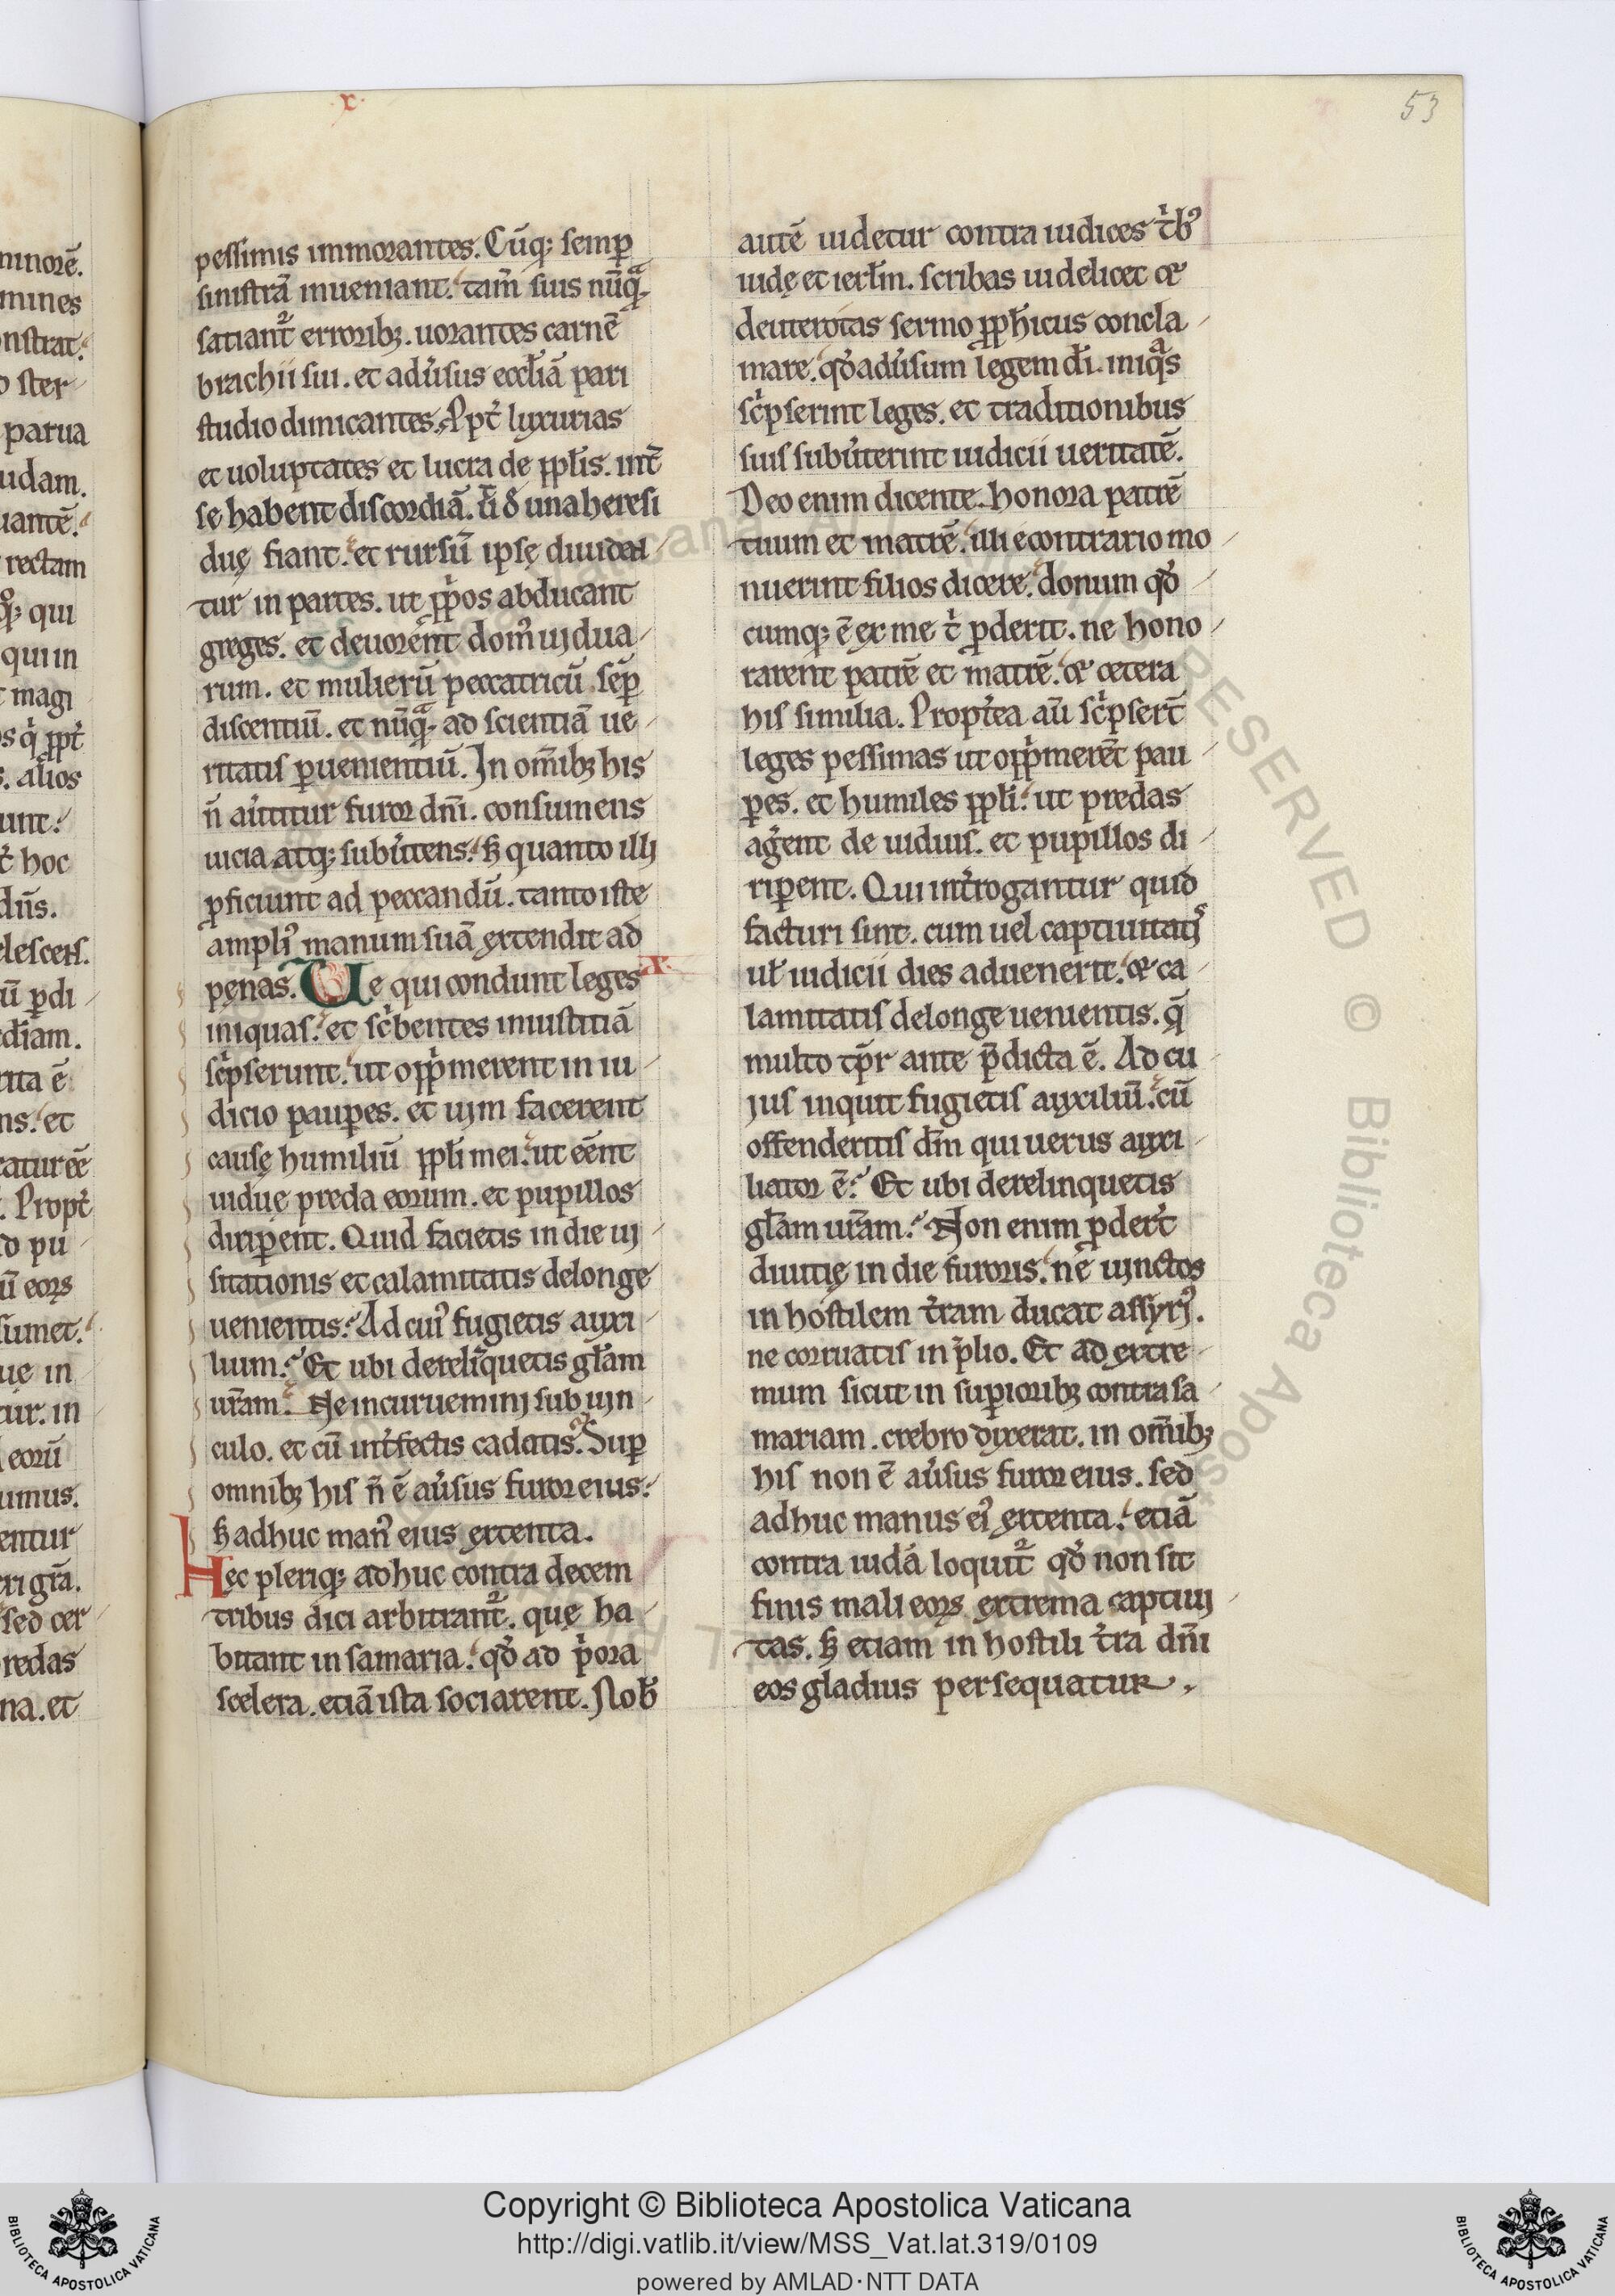 x.
53
pessimis immorantes. Cūq; semp̄
sinistrā inueniant. tam̄ suis nūqᷓ
satiant᷑ erroribꝫ. uorantes carnē
brachii sui. et adu̓sus eccl̄iā pari
studio dimicantes. Ppt̓ luxurias
et uoluptates et lucra de ppl̓is. int̓
se habent discordiā. ut̄ d̓ una heresi
duę fiant. et rursū ipsę diuidan
tur in partes. ut pp̓os abducant
greges. et deuorent dom᷒ uidua
rum. et mulierū peccatricū sēp
discentiū. et nūqᷓ ad scientiā ue
ritatis ꝑuenientiū. In om̄ibꝫ his
n̄ au̓titur furor dn̄i. consumens
uicia atq; subu̓tens. ꝫ quanto illi
ꝓficiunt ad peccandū. tanto iste
ampli᷒ manum suā extendit ad
pęnas. Ue qui condunt leges x.
iniquas. et sc̓bentes iniustitiā
sc̓pserunt. ut opp̓merent in iu
dicio pauꝑes. et uim facerent
causę humiliū ppl̓i mei. ut eēnt
uiduę preda eorum. et pupillos
diriꝑent. Quid facietis in die ui
sitationis et calamitatis de longe
uenientis. Ad cui᷒ fugietis auxi
lium. Et ubi dereliq̓uetis gl̄am
ur̄am. Ne incuruemini sub uin
culo. et cū int̓fectis cadatis. Suꝑ
omnibꝫ his n̄ ē au̓sus furor eius.
ꝫ adhuc man᷒ eius extenta.
Hęc pleriq; adhuc contra decem
tribus dici arbitrant᷑. quę ha
bitant in samaria. qd̓ ad p̓ora
scelera. etiā ista sociarent. Nob̄
autē uidetur contra iudices t̓b᷒
iudę et ierl̄m. scribas uidelicet &
deuterotas sermo pph̄icus concla
mare. qd̓ adu̓sum legem dī. iniqᷓs
sc̓pserint leges. et traditionibus
suis subu̓terint iudicii ueritatē.
Deo enim dicente. honora patrē
tuum et matrē. illi econtrario mo
nuerint filios dicere. donum qd̓
cumq; ē ex me t̓ ꝓderit. ne hono
rarent patrē et matrē. & cetera
his similia. Propt̓ea aū sc̓psert̄
leges pessimas ut opp̓merēt pau
ꝑes. et humiles ppl̓i. ut predas
ag̓ent de uiduis. et pupillos di
riꝑent. Qui int̓rogantur quid
facturi sint. cum uel captiuitatis
ul̄ iudicii dies aduenerit. & ca
lamitatis de longe uenientis. q̄
multo tp̄r ante p̄dicta ē. Ad cu
ius inquit fugietis auxiliū. cū
offenderitis dm̄ qui uerus auxi
liator ē. Et ubi derelinquetis
gl̄am ur̄am. Non enim ꝓder̄t
diuitię in die furoris. ne uinctos
in hostilem t̓ram ducat assyri᷒.
ne corruatis in p̄lio. Et ad extre
mum sicut in suꝑioribꝫ contra sa
mariam. crebro dixerat. in om̄ibꝫ
his non ē au̓sus furor eius. sed
adhuc manus ei᷒ extenta. etiā
contra iudā loquit᷑ qd̓ non sit
finis mali eoꝝ extrema captiui
tas. ꝫ etiam in hostili t̓ra dn̄i
eos gladius persequatur.
Copyright © Biblioteca Apostolica Vaticana
http://digi.vatlib.it/view/MSS_Vat.lat.319/0109
powered by AMLAD·NTT DATA